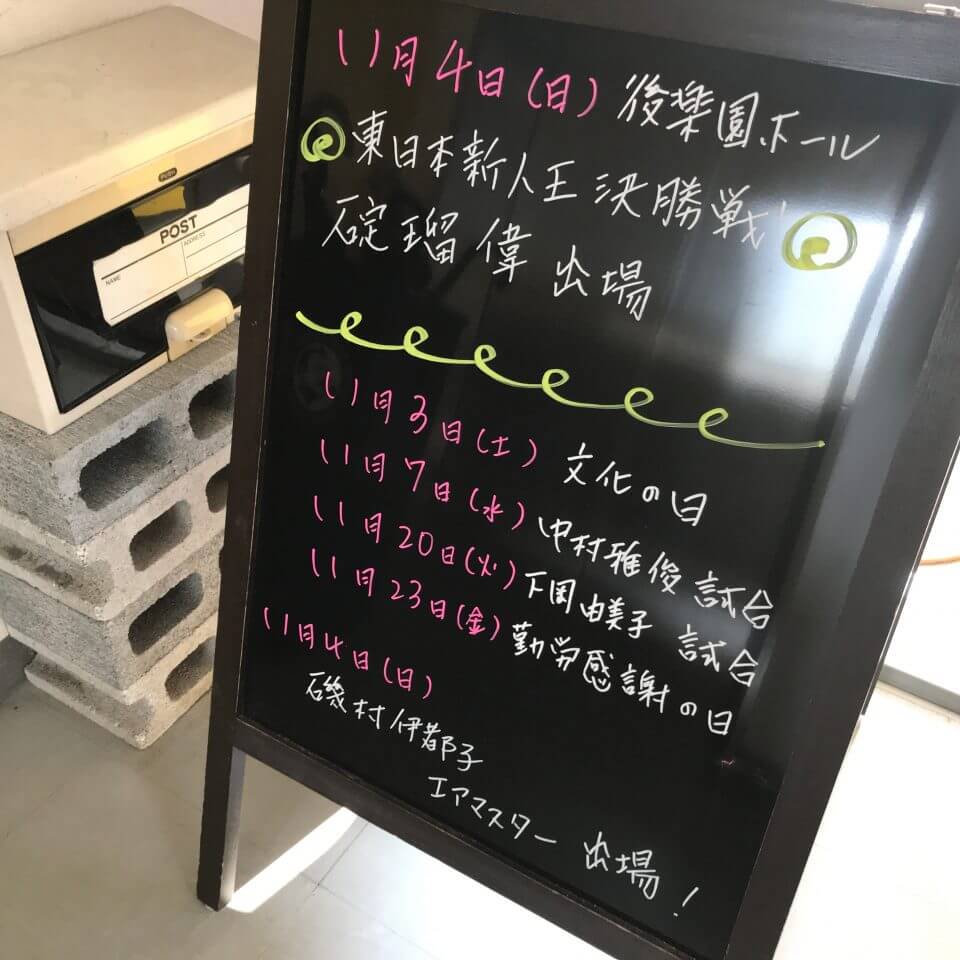 PUSH
POST
NAME
ADDRESS
11月4日(日) 後楽園ホール
東日本新人王決勝戦!
碇瑠偉 出場
11月3日(土) 文化の日
11月7日(水) 中村雅俊 試合
11月20日(火) 下岡由美子 試合
11月23日(金) 勤労感謝の日
11月4日(日)
磯村伊都子
エアマスター 出場!